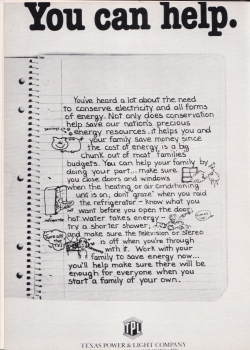 You can help.
You've heard a lot about the need
to conserve electricity and all forms
of energy. Not only does conservation
help save our nation's precious
energy resources.. it helps you and
your family save money since
the cost of energy is a big
chunk out of most families
budgets. You can help your family by
doing your part... make sure
you close doors and windows
when the heating or air conditioning
unit is on; don't 'graze' when you raid
the refrigerator - know what you
want before you open the door;
hot water takes energy -
try a shorter shower;
and make sure the television or stereo
is off when you're through
with it. Work with your
family to save energy now...
you'll help make sure there will be
enough for everyone when you
start a family of your own.
TPL
TEXAS POWER & LIGHT COMPANY